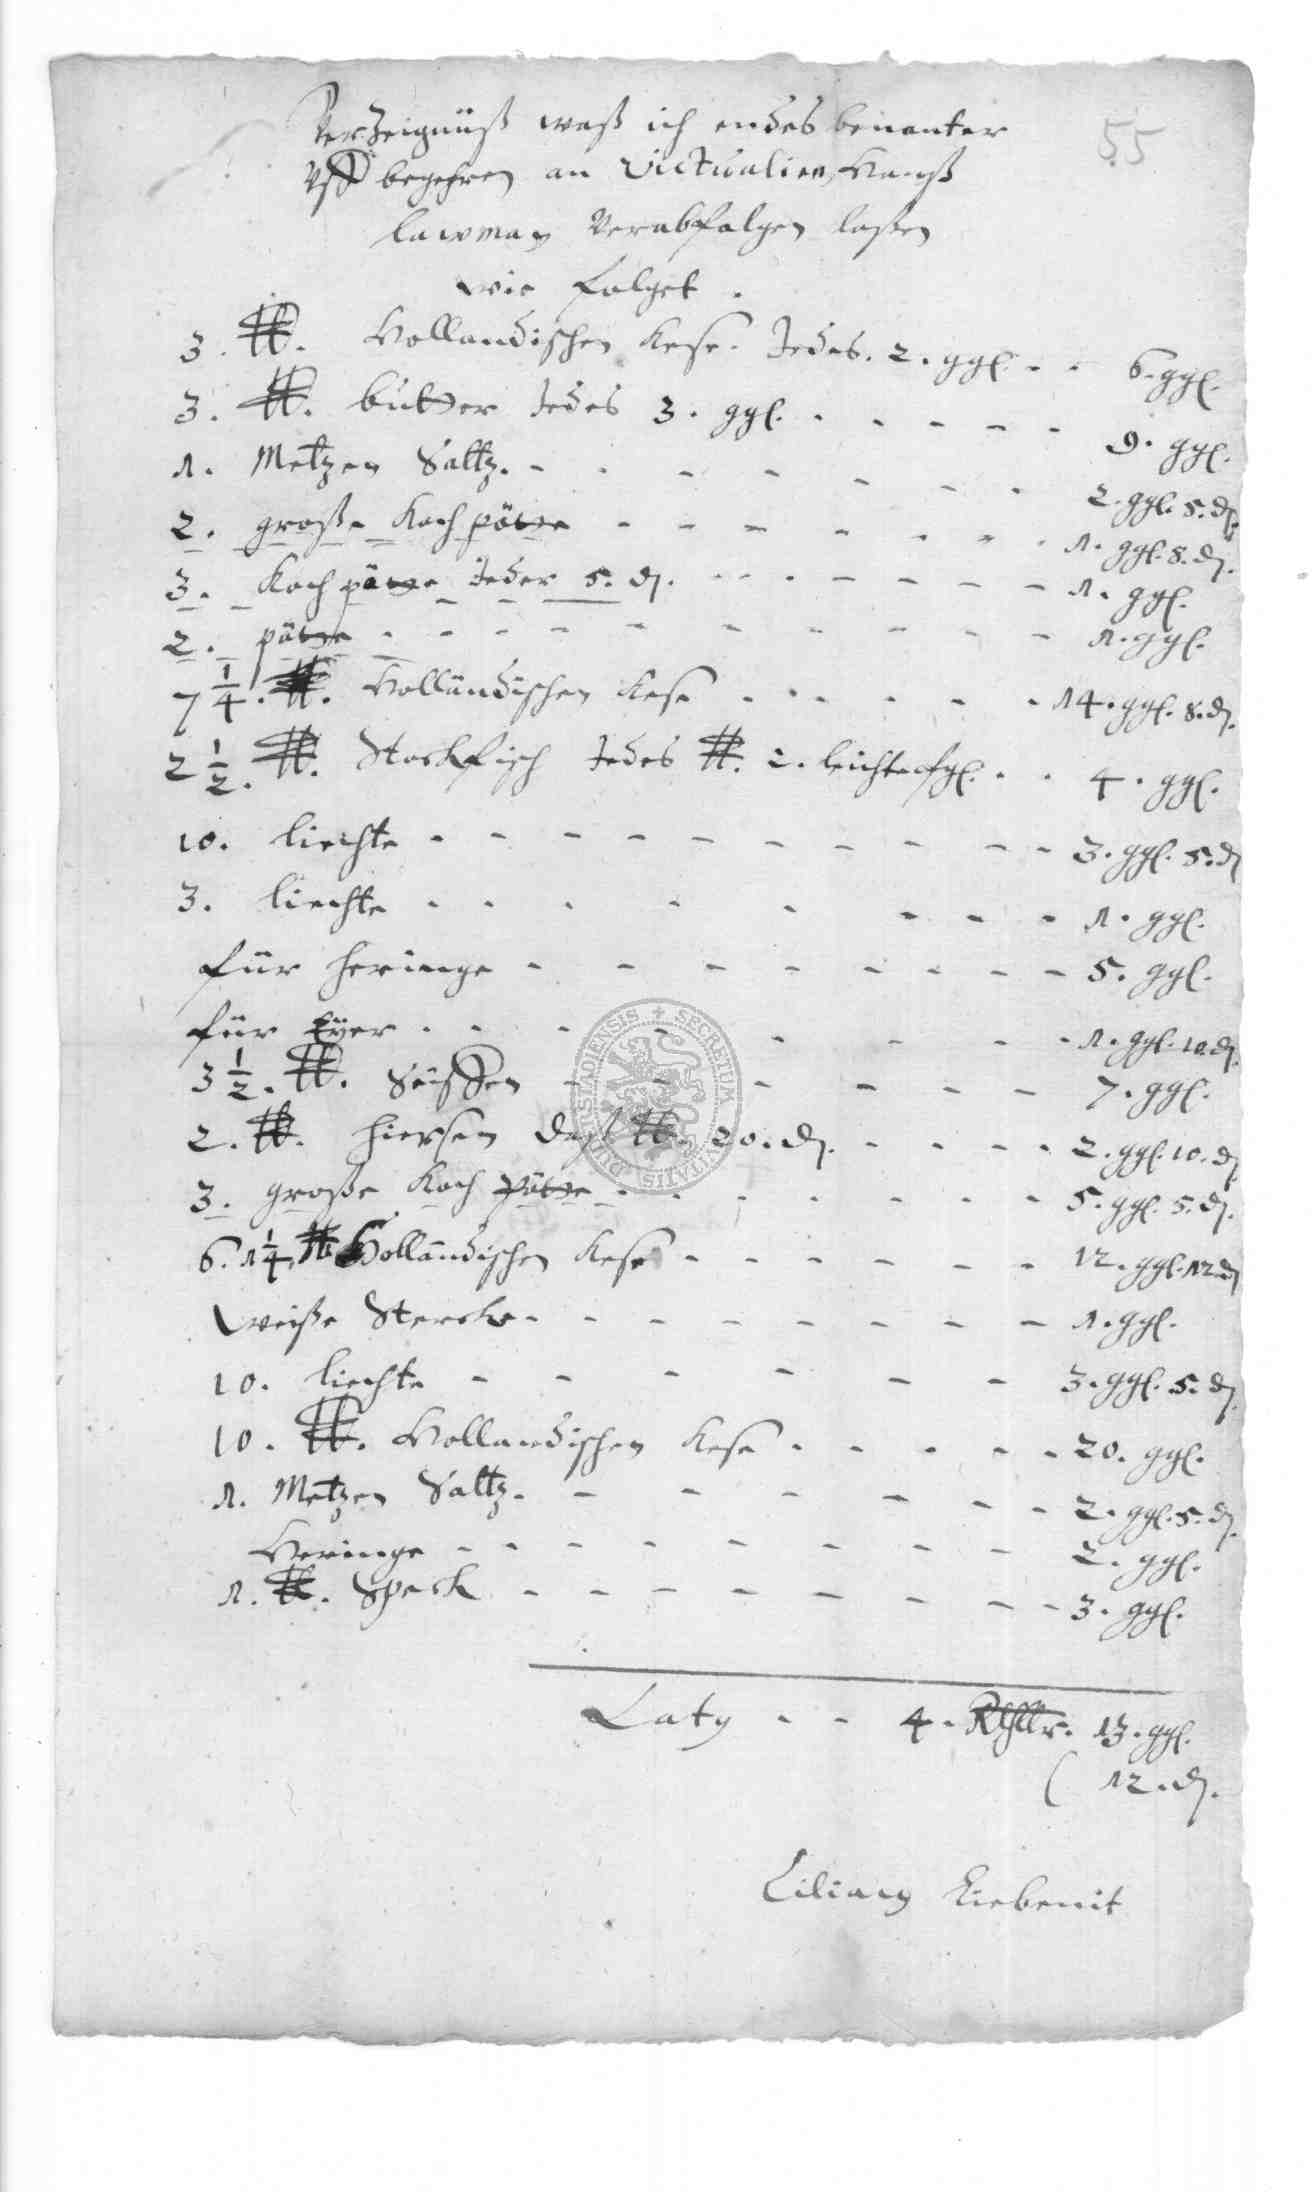 55
Verzeignüß waß ich endes benanter
Vff begehren an Victualien, Hanß
Lawman Verabfolgen laßen
wie folget.
3. ℔. Hollandischen Kese. Jedes. 2. ggl. - - 6. ggl.
3. ℔. butter Jedes 3. ggl. - - - - - 9. ggl.
1. Metzen Saltz. - - - - - - - 2. ggl. 5. ₰.
2. große Kochpötte - - - - - - - 1. ggl. 8. ₰.
3. Kochpötte Jeder 5. ₰. - - - - - - - 1. ggl.
2. pötte - - - - - - - - - - 1. ggl.
7 1/4. ℔. Holländischen Kese - - - - - - 14. ggl. 8. ₰.
2 1/2. ℔. Stockfisch Jedes ℔. 2. leichte ßgl. - - 4. ggl.
10. liechte - - - - - - - - - - 3. ggl. 5. ₰
3. liechte - - - - - - - - 1. ggl.
für heringe - - - - - - - - 5. ggl.
für Eÿer - - - - - - - 1. ggl. 10. ₰.
3 1/2. ℔. - - - - - - 7. ggl.
2. ℔. hiersen daß ℔. 20. ₰. - - - - 2. ggl. 10. ₰
3. große Koch Pötte - - - - - - - 5. ggl. 5. ₰.
6. 1 1/4. ℔ Hollandischen Kese - - - - - - 12. ggl. 12 ₰
Weiße Stercke - - - - - - - - 1. ggl.
10. liechte - - - - - - 3. ggl. 5. ₰.
10. ℔. Hollandischen Kese - - - - - 20. ggl.
1. Metzen Saltz. - - - - - - 2. ggl. 5. ₰.
Heringe - - - - - - - - 2. ggl.
1. ℔. Speck - - - - - - - - 3. ggl.
Latg - - 4. Rthllr. 13. ggl.
( 12. ₰.
Cilian Liebenit
SECRETUM CIVITATIS